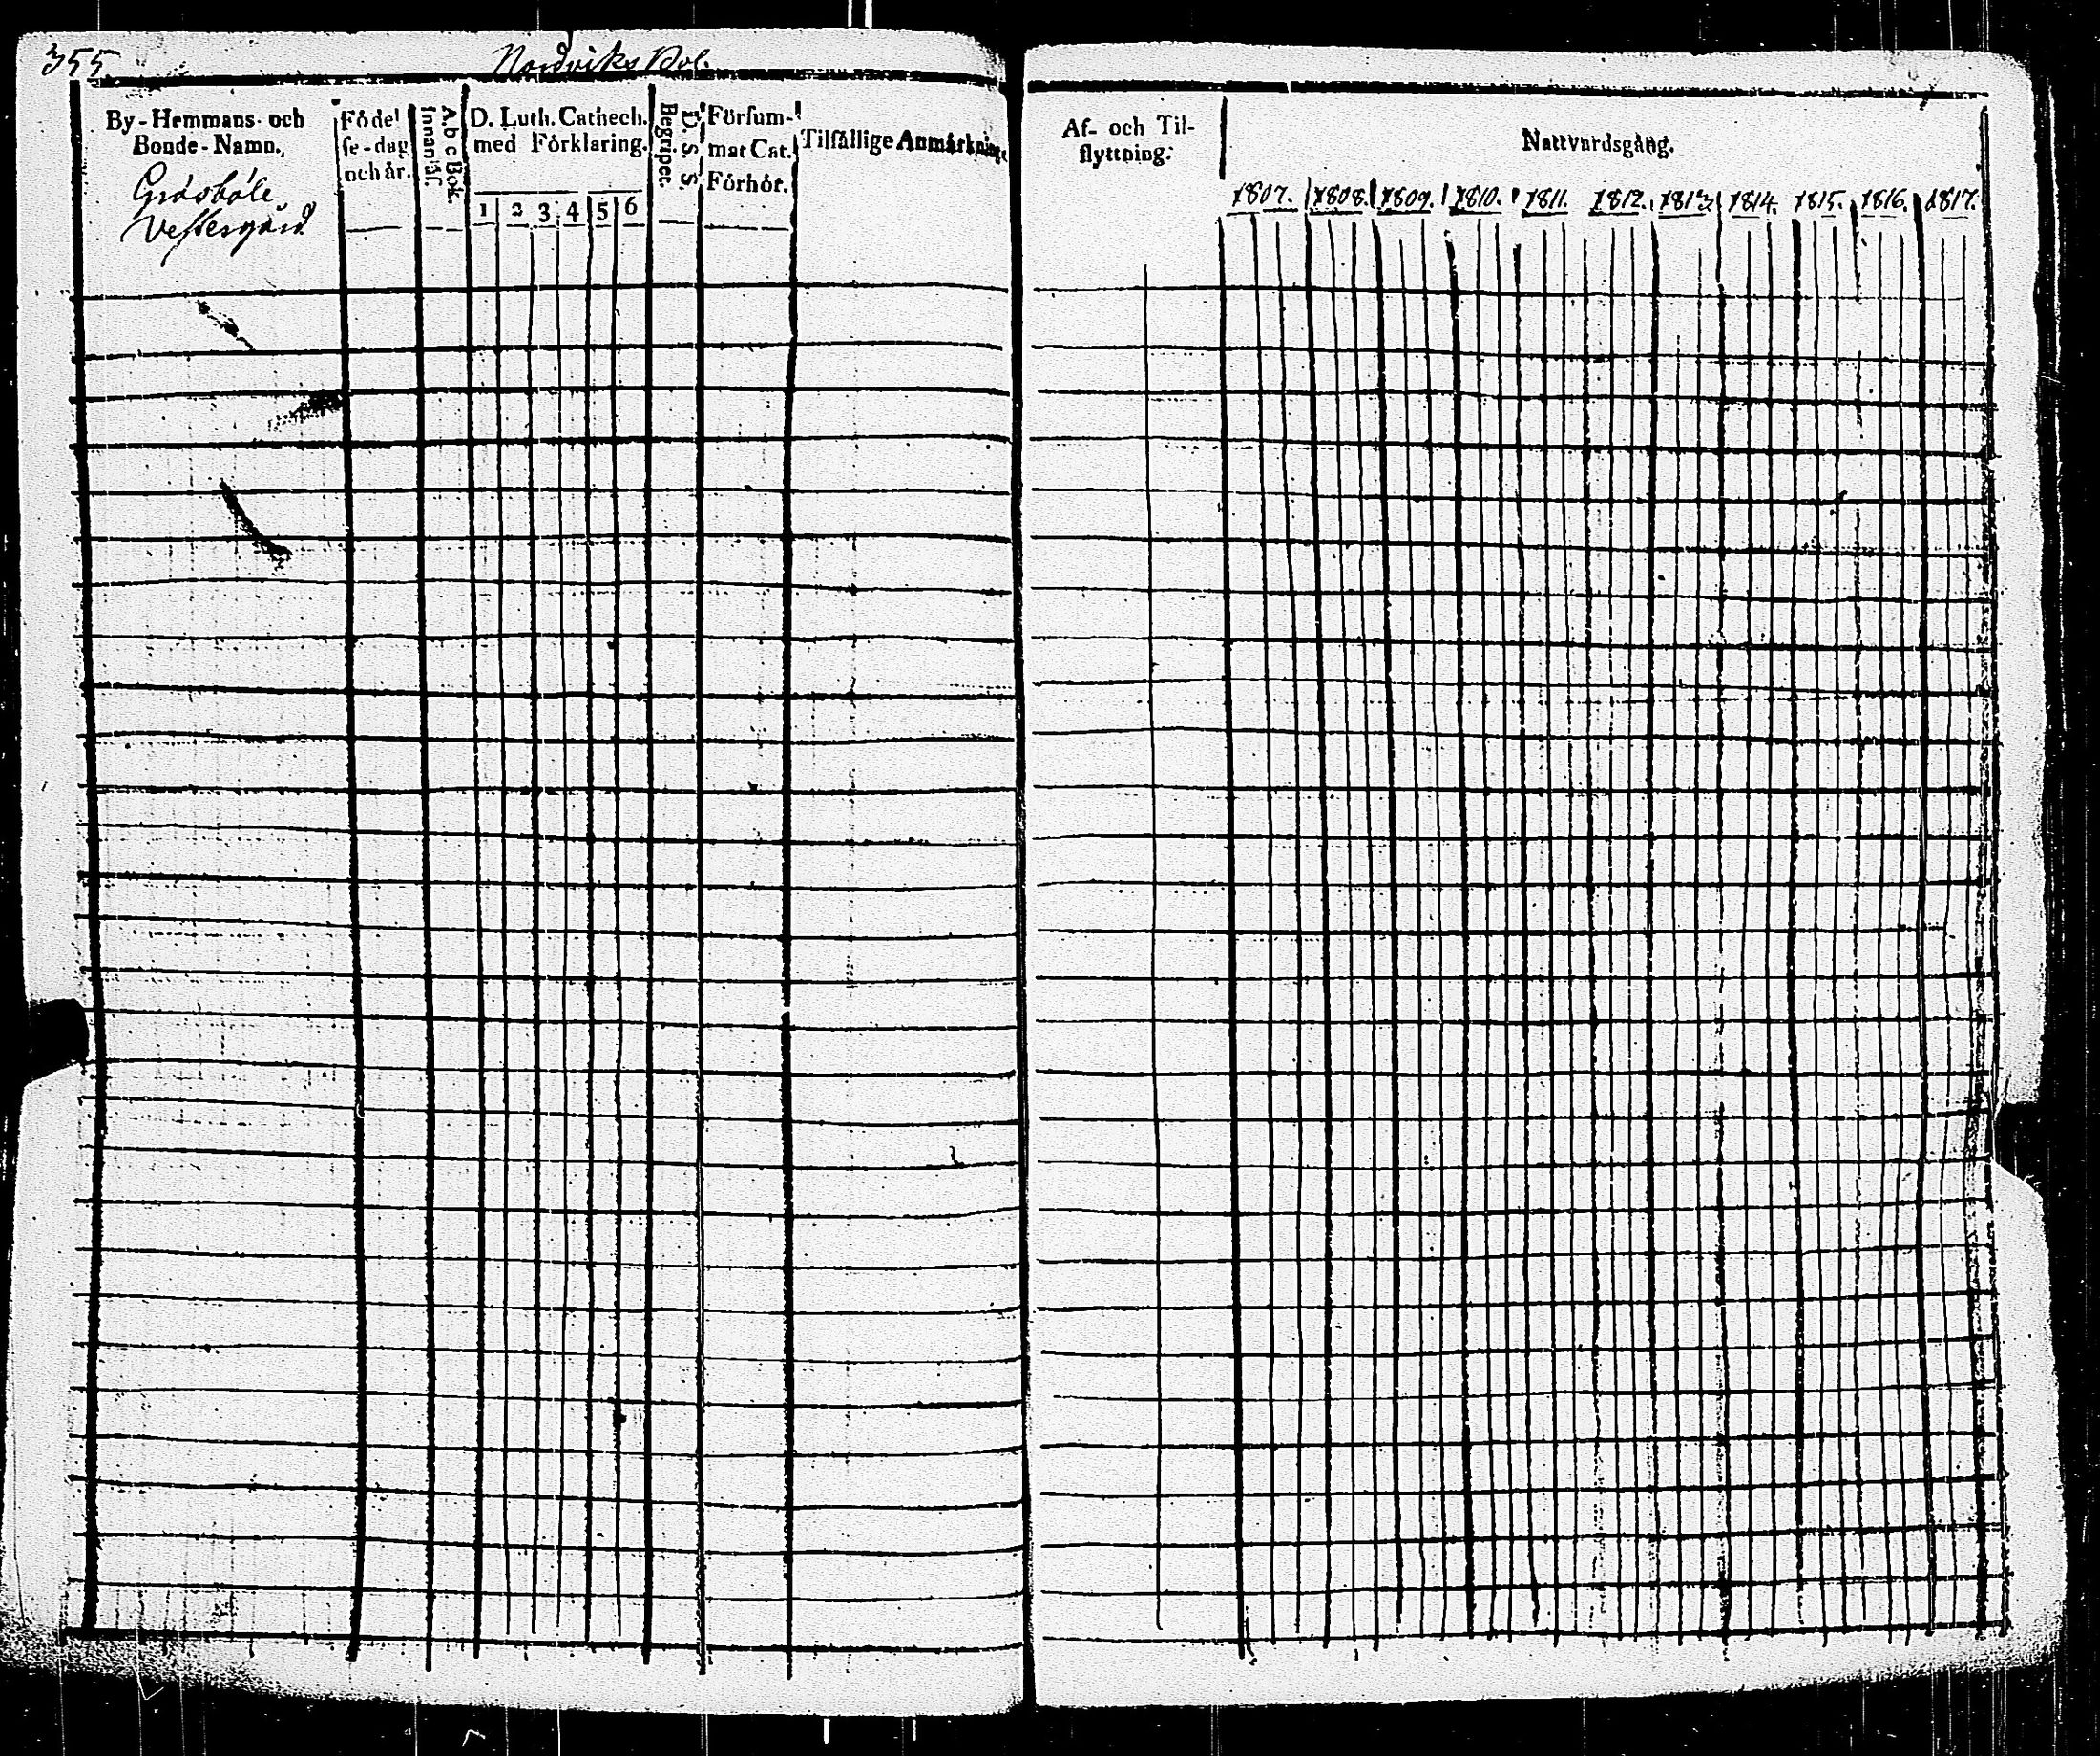 355
Nordviks Bol.
By-Hemmans- och
Bonde-Namn.
Gräsböle
Vestergård
Födel
se-dag
och år.
A b c Bok.
Innanläs.
D. Luth. Cathech.
med Förklaring.
1 2 3 4 5 6
D. S. S.
Begriper.
Försum-
mat Cat.
Förhör.
Tilfällige Anmärkning
Af- och Til-
flyttning.
Nattvardsgång.
1807. 1808. 1809. 1810. 1811. 1812. 1813 1814. 1815. 1816. 1817.